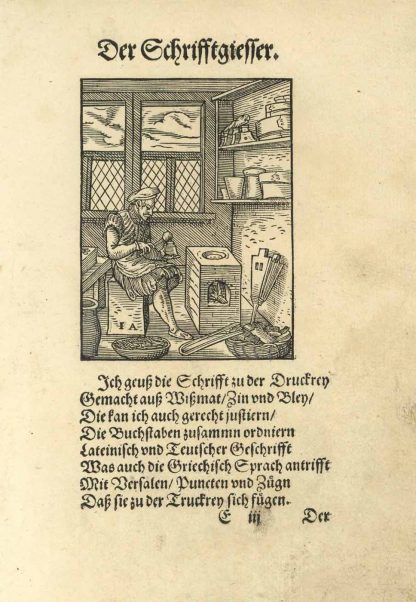 Der Schrifftgiesser.
IA
Ich geuß die Schrifft zu der Druckrey
Gemacht auß Wißmat/Zin vnd Bley/
Die kan ich auch gerecht justiern/
Die Buchstaben zusammn ordniern
Lateinisch vnd Teutscher Geschrifft
Was auch die Griechisch Sprach antrifft
Mit Versalen/ Puncten vnd Zügn
Daß sie zu der Truckrey sich fügen.
E iij Der